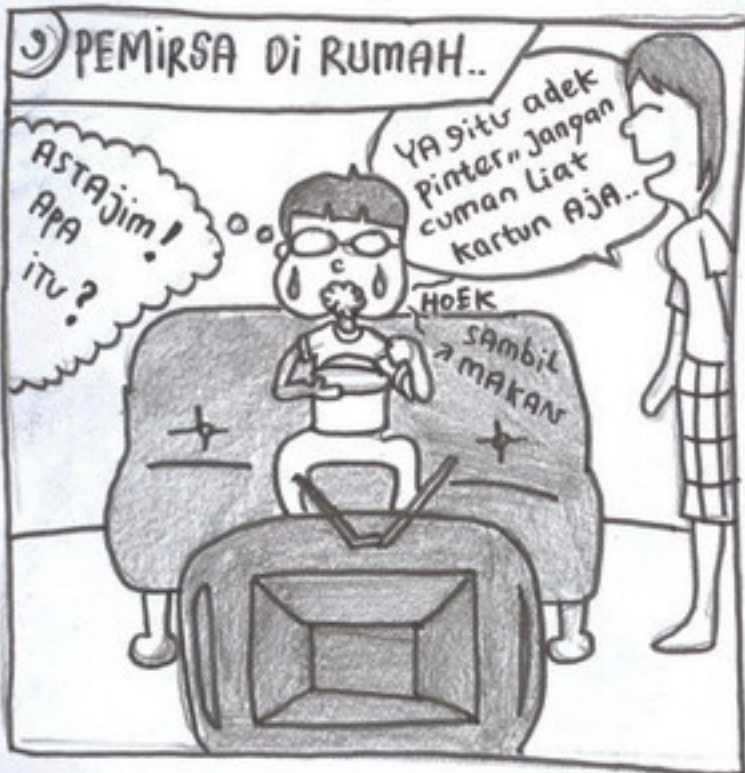 9) PEMIRSA Di RUMAH..
ASTAJim!
APA
iTU?
YA gitu adek
pinter,, Jangan
cuman Liat
kartun AJA..
HOEK
SAmbiL
MAKAN